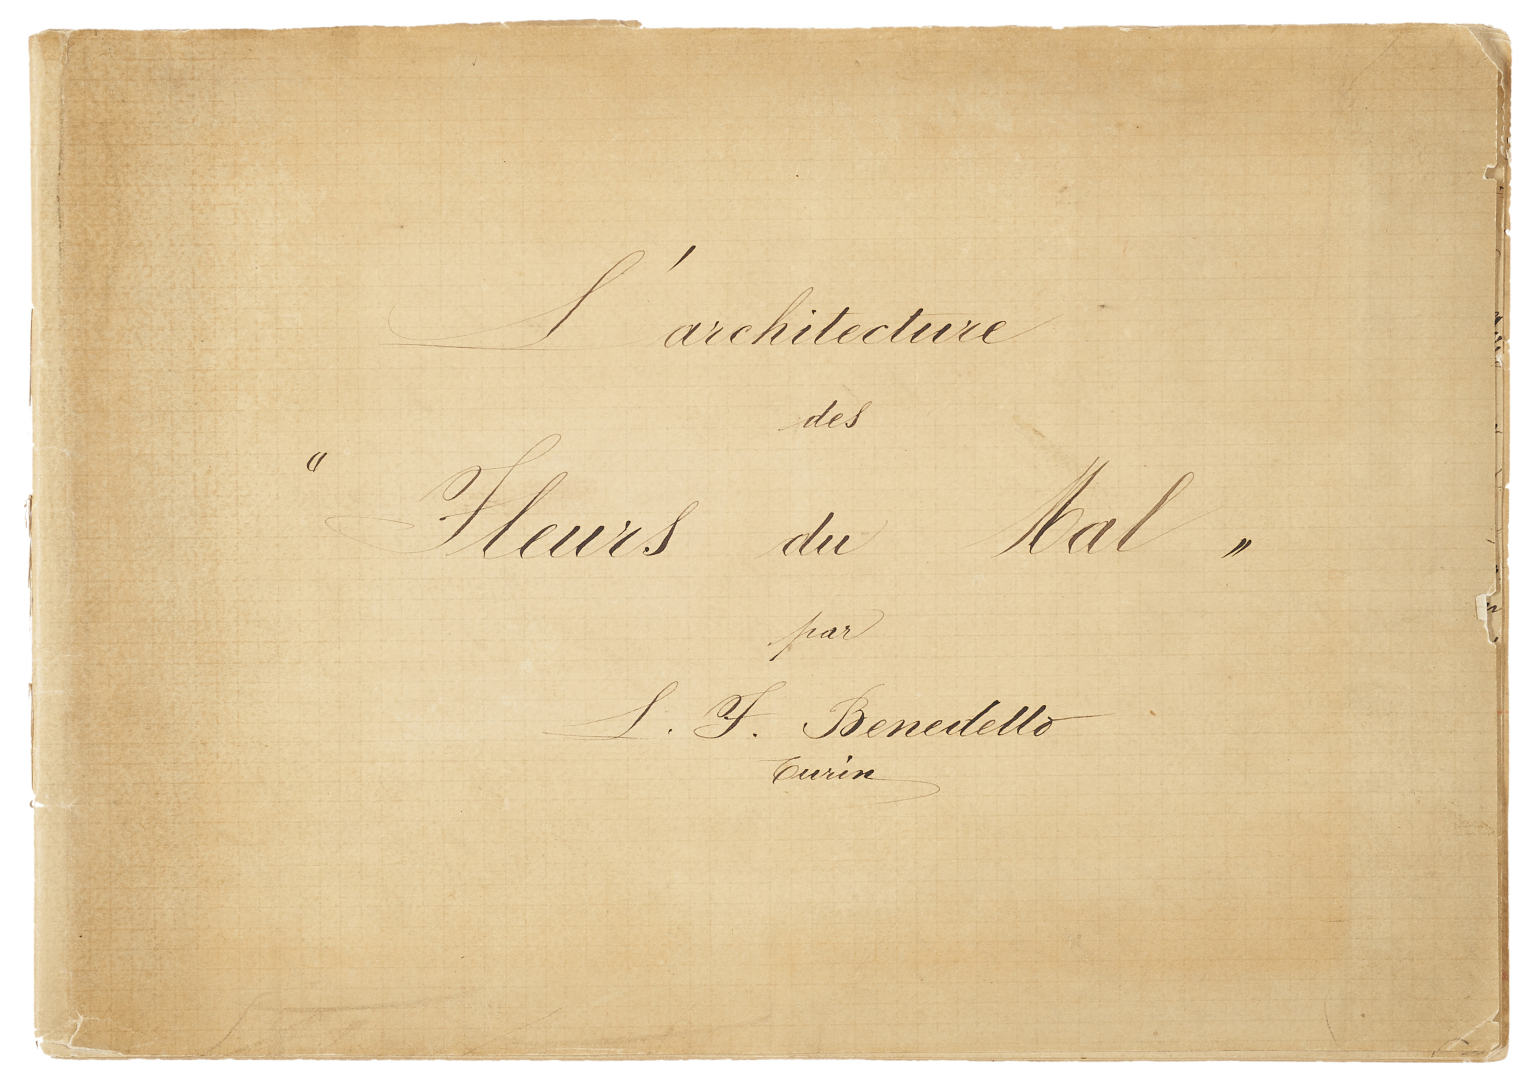 L'architecture
des
“ Fleurs du Mal „
par
L. F. Benedetto
Turin